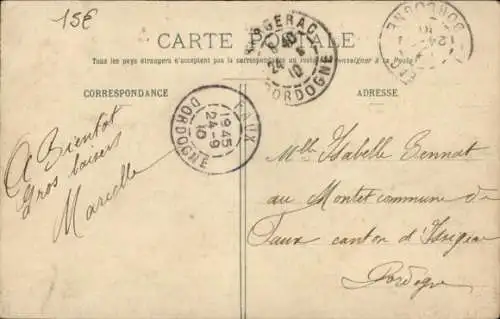 15€
CARTE POSTALE
Tous les pays étrangers n'acceptent pas la correspondance au recto (se renseigner à la Poste)
CORRESPONDANCE
ADRESSE
BERGERAC
24
10
DORDOGNE
DORDOGNE
24
10
FAUX
19 45
24-9
10
DORDOGNE
A Bientot
Gros baisers
Marcelle
Mlle Isabelle
au Montet commune de
Faux canton d'Issigeac
Dordogne